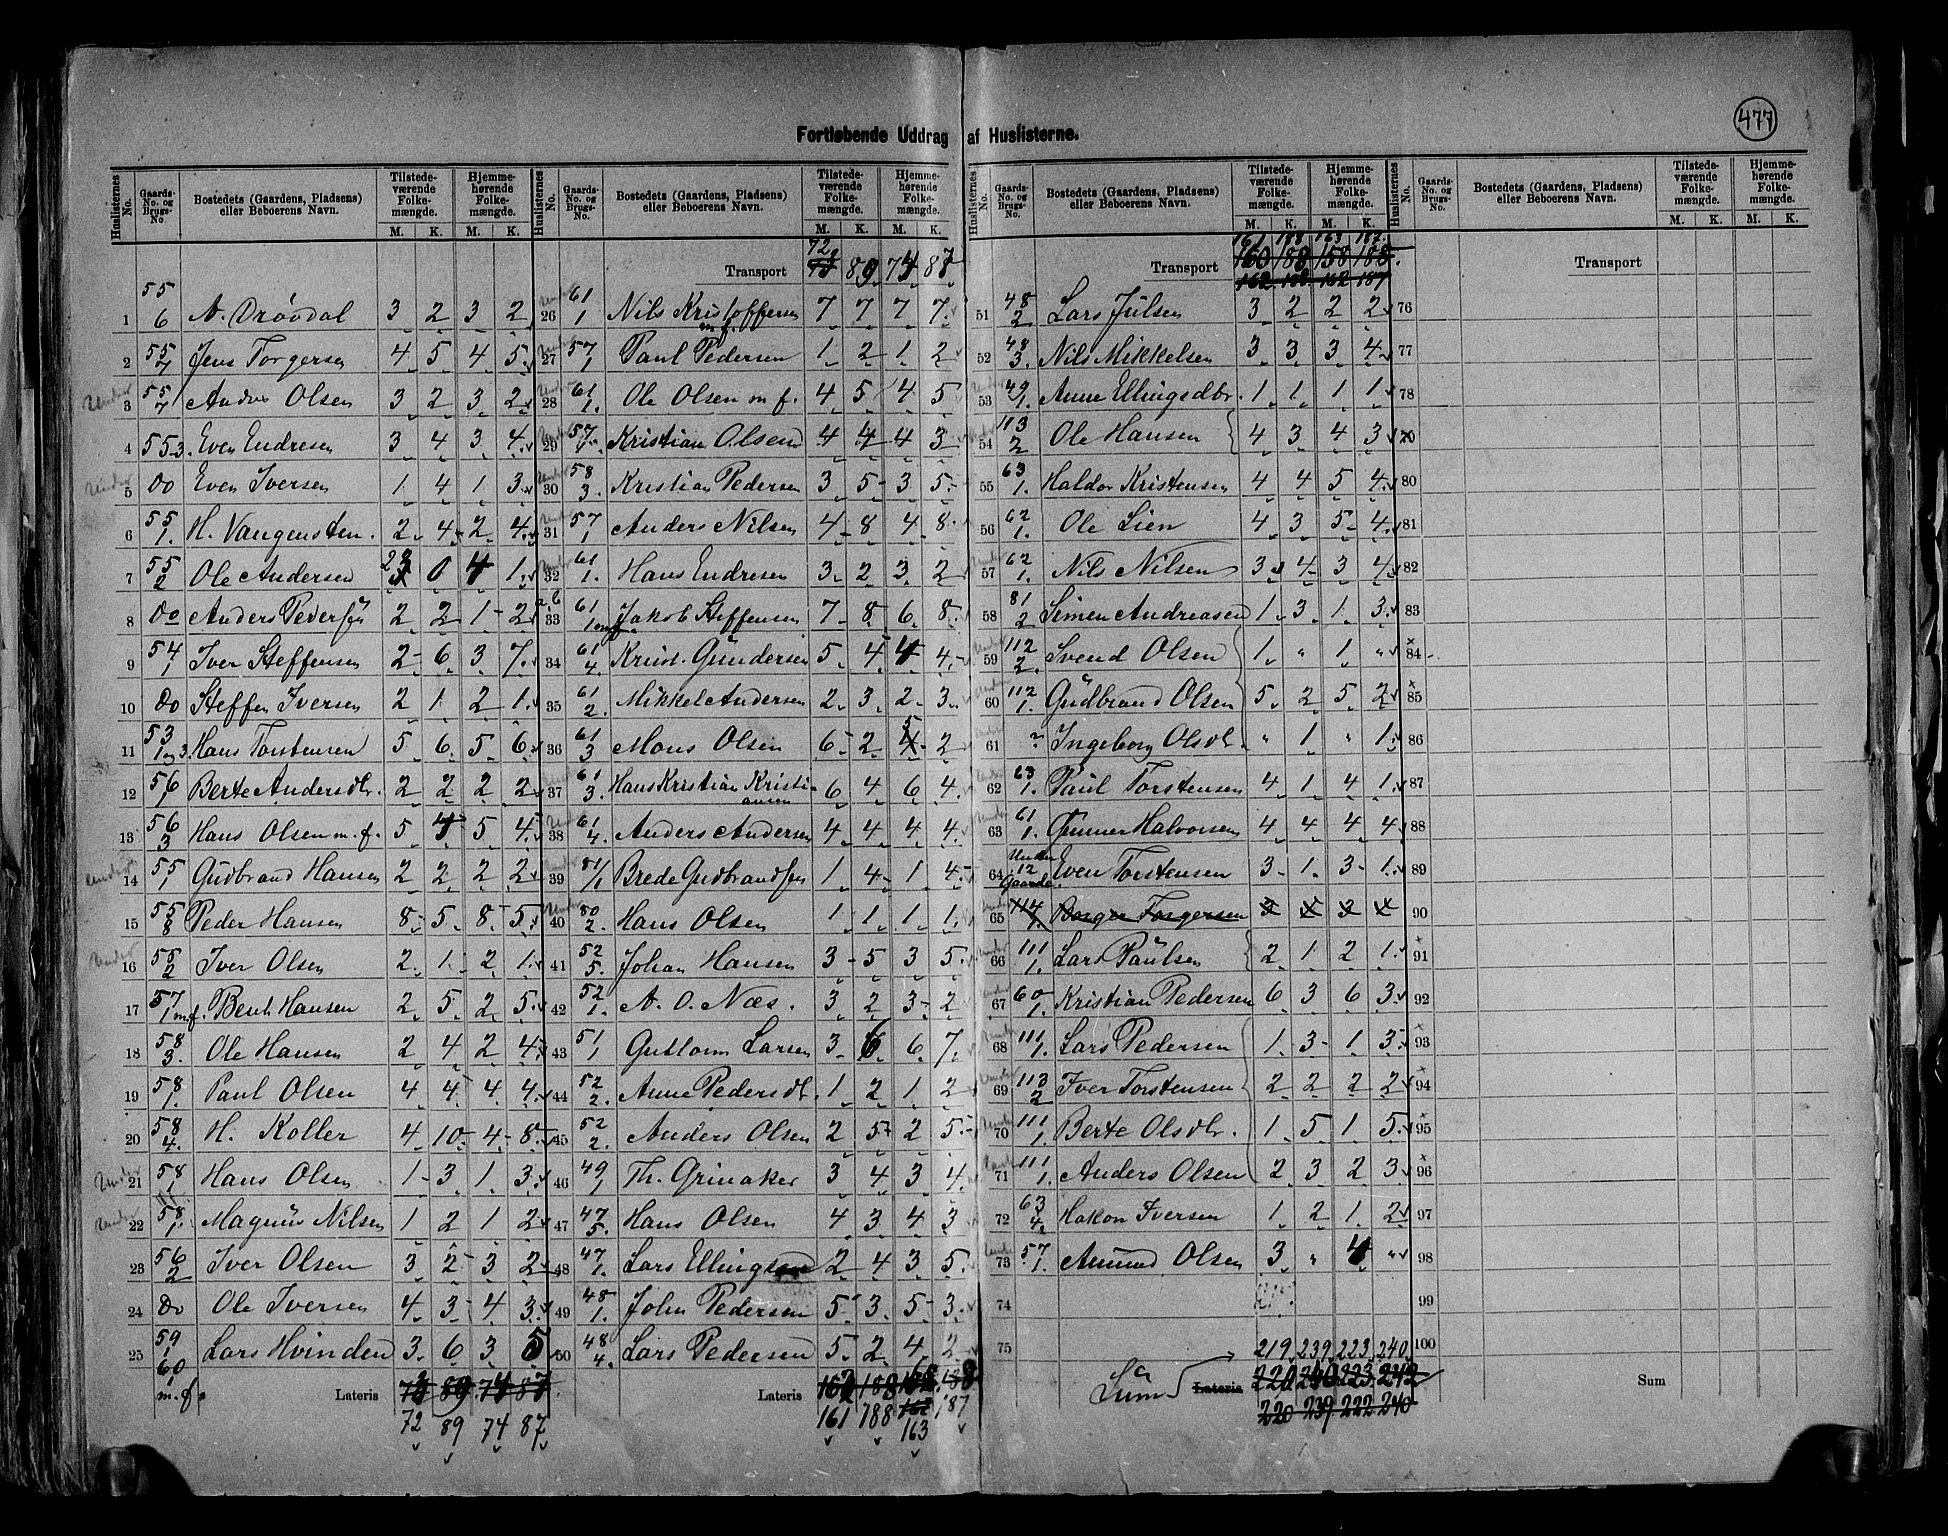 477
Fortløbende Uddrag af Huslisterne.
Huslisternes No. Gaards-No. og Brugs-No. Bostedets (Gaardens, Pladsens) eller Beboerens Navn. Tilstedeværende Folkemængde. M. K. Hjemmehørende Folkemængde. M. K.
1 55/6 A. Drövdal 3 2 3 2
2 55/7 Jens Torgersen 4 5 4 5
Under 3 55/7 Andrs Olsen 3 2 3 2
4 55/3 Even Endresen 3 4 3 4
Under 5 Do Even Iversen 1 4 1 3
6 55/1 H. Vangensten 2 4 2 4
7 55/2 Ole Andersen 2 0 4 1
8 Do Anders Pedersen 2 2 1 2
9 54/1 Iver Steffensen 2 6 3 7
10 Do Steffen Iversen 2 1 2 1
11 53/1 3 Hans Torstensen 5 6 5 6
12 56/1 Berte Andersdtr. 2 2 2 2
13 56/3 Hans Olsen m. f. 5 4 5 4
Under 14 55/1 Gudbrand Hansen 2 2 2 2
15 55/8 Peder Hansen 8 5 8 5
Under 16 55/2 Iver Olsen 2 1 2 1
17 57/1 m.f. Bent Hansen 2 5 2 5
18 58/3 Ole Hansen 2 4 2 4
19 58/1 Paul Olsen 4 4 4 4
20 58/4 H. Koller 4 10 4 8
Under 21 58/1 Hans Olsen 1 3 1 3
Under 22 58/1 Magnus Nilsen 1 2 1 2
23 56/2 Iver Olsen 3 2 3 2
24 Do Ole Iversen 4 3 4 3
25 59/60 m.f. Lars Hvinden 3 6 3 5
Lateris 72 89 74 87
Transport 72 89 74 87
26 61/1 Nils Kristoffersen m. f. 7 7 7 7
27 57/1 Paul Pedersen 1 2 1 2
28 61/1 Ole Olsen m. f. 4 5 4 5
29 57/1 Kristian Olsen 4 4 4 3
30 58/3 Kristian Pedersen 3 5 3 5
31 57/1 Anders Nilsen 4 8 4 8
32 61/1 Hans Endresen 3 2 3 2
33 61/1 Jakob Steffensen 7 8 6 8
34 61/4 Krist. Gundersen 5 4 4 4
35 61/2 Mikkel Andersen 2 3 2 3
36 61/3 Mons Olsen 6 2 5 2
37 61/3 Hans Kristian Kristiansen 6 4 6 4
38 61/4 Anders Andersen 4 4 4 4
39 81/1 Brede Gudbrandsen 1 4 1 4
40 80/2 Hans Olsen 1 1 1 1
41 52/5 Johan Hansen 3 5 3 5
42 52/1 A. O. Næs. 3 2 3 2
43 51/1 Guttorm Larsen 3 6 6 7
44 52/2 Anne Pedersdt. 1 2 1 2
45 52/2 Anders Olsen 2 5 2 5
46 49/1 Th. Grinaker 3 4 3 4
47 47/5 Hans Olsen 4 3 4 3
48 47/1 Lars Ellingsen 2 4 3 5
49 48/1 John Pedersen 5 3 5 3
50 48/4 Lars Pedersen 5 2 4 2
Lateris 161 188 163 187
Transport 161 188 163 187
51 48/2 Lars Julsen 3 2 2 2
52 48/3 Nils Mikkelsen 3 3 3 4
53 49/1 Anne Ellingsdtr. 1 1 1 1
54 113/2 Ole Hansen 4 3 4 3
55 63/1 Haldor Kristensen 4 4 5 4
56 62/1 Ole Lien 4 3 5 4
57 62/1 Nils Nilsen 3 4 3 4
58 81/2 Simen Andreasen 1 3 1 3
59 112/2 Svend Olsen 1 " 1 "
60 112/1 Gudbrand Olsen 5 2 5 2
61 ? Ingeborg Olsdt. " 1 " 1
62 63/1 Paul Torstensen 4 1 4 1
63 61/1 Gunner Halvorsen 4 4 4 4
64 Under 12 Gaarde. Even Torstensen 3 1 3 1
65 114/1 Borger Torgersen
66 111/1 Lars Paulsen 2 1 2 1
67 60/1 Kristian Pedersen 6 3 6 3
68 111/1 Lars Pedersen 1 3 1 3
69 113/2 Iver Torstensen 2 2 2 2
70 111/1 Berte Olsdtr. 1 5 1 5
71 111/1 Anders Olsen 2 3 2 3
72 63/4 Hakon Iversen 1 2 1 2
73 57/1 Amund Olsen 3 " 4 "
74
75 219 239 223 240
Sum Lateris 220 240 223 242
220 239 222 240
Transport
76
77
78
79
80
81
82
83
84
85
86
87
88
89
90
91
92
93
94
95
96
97
98
99
100
Sum